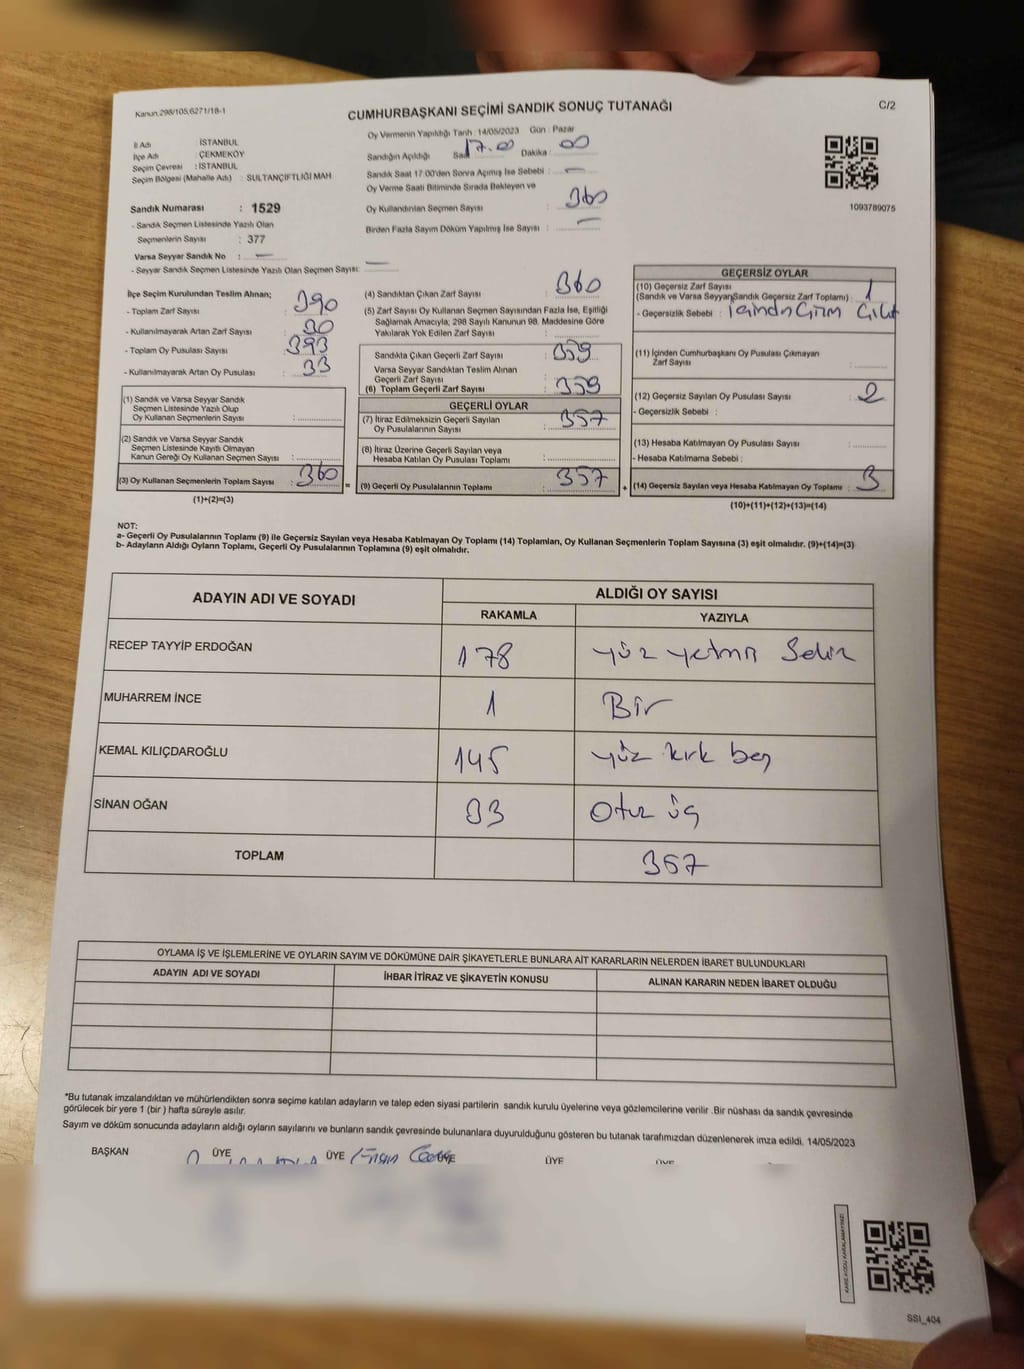 Kanun.298/105,6271/18-1
CUMHURBAŞKANI SEÇİMİ SANDIK SONUÇ TUTANAĞI
C/2
İl Adı : İSTANBUL
İlçe Adı : ÇEKMEKÖY
Seçim Çevresi : İSTANBUL
Seçim Bölgesi (Mahalle Adı) : SULTANÇİFTLİĞİ MAH.
Sandık Numarası : 1529
- Sandık Seçmen Listesinde Yazılı Olan
Seçmenlerin Sayısı : 377
Varsa Seyyar Sandık No : —
- Seyyar Sandık Seçmen Listesinde Yazılı Olan Seçmen Sayısı: —
Oy Vermenin Yapıldığı Tarih : 14/05/2023 Gün : Pazar
Sandığın Açıldığı Saat 17.00 Dakika : 00
Sandık Saat 17:00'den Sonra Açımış İse Sebebi : —
Oy Verme Saati Bitiminde Sırada Bekleyen ve
Oy Kullandırılan Seçmen Sayısı : 360
Birden Fazla Sayım Döküm Yapılmış İse Sayısı : —
1093789075
İlçe Seçim Kurulundan Teslim Alınan;
- Toplam Zarf Sayısı : 390
- Kullanılmayarak Artan Zarf Sayısı : 30
- Toplam Oy Pusulası Sayısı : 393
- Kullanılmayarak Artan Oy Pusulası : 33
(1) Sandık ve Varsa Seyyar Sandık
Seçmen Listesinde Yazılı Olup
Oy Kullanan Seçmenlerin Sayısı :
(2) Sandık ve Varsa Seyyar Sandık
Seçmen Listesinde Kayıtlı Olmayan
Kanun Gereği Oy Kullanan Seçmen Sayısı :
(3) Oy Kullanan Seçmenlerin Toplam Sayısı : 360
(1)+(2)=(3)
=
(4) Sandıktan Çıkan Zarf Sayısı : 360
(5) Zarf Sayısı Oy Kullanan Seçmen Sayısından Fazla İse, Eşitliği
Sağlamak Amacıyla; 298 Sayılı Kanunun 98. Maddesine Göre
Yakılarak Yok Edilen Zarf Sayısı :
Sandıkta Çıkan Geçerli Zarf Sayısı : 359
Varsa Seyyar Sandıktan Teslim Alınan
Geçerli Zarf Sayısı :
(6) Toplam Geçerli Zarf Sayısı : 359
GEÇERLİ OYLAR
(7) İtiraz Edilmeksizin Geçerli Sayılan
Oy Pusulalarının Sayısı : 357
(8) İtiraz Üzerine Geçerli Sayılan veya
Hesaba Katılan Oy Pusulası Toplamı :
(9) Geçerli Oy Pusulalarının Toplamı : 357
+
GEÇERSİZ OYLAR
(10) Geçersiz Zarf Sayısı
(Sandık ve Varsa SeyyarSandık Geçersiz Zarf Toplamı) : 1
- Geçersizlik Sebebi :
(11) İçinden Cumhurbaşkanı Oy Pusulası Çıkmayan
Zarf Sayısı :
(12) Geçersiz Sayılan Oy Pusulası Sayısı : 2
- Geçersizlik Sebebi :
(13) Hesaba Katılmayan Oy Pusulası Sayısı :
- Hesaba Katılmama Sebebi :
(14) Geçersiz Sayılan veya Hesaba Katılmayan Oy Toplamı : 3
(10)+(11)+(12)+(13)=(14)
NOT:
a- Geçerli Oy Pusulalarının Toplamı (9) ile Geçersiz Sayılan veya Hesaba Katılmayan Oy Toplamı (14) Toplamları, Oy Kullanan Seçmenlerin Toplam Sayısına (3) eşit olmalıdır. (9)+(14)=(3)
b- Adayların Aldığı Oyların Toplamı, Geçerli Oy Pusulalarının Toplamına (9) eşit olmalıdır.
ADAYIN ADI VE SOYADI
ALDIĞI OY SAYISI
RAKAMLA YAZIYLA
RECEP TAYYİP ERDOĞAN 178 yüz yetmiş sekiz
MUHARREM İNCE 1 Bir
KEMAL KILIÇDAROĞLU 145 yüz kırk beş
SİNAN OĞAN 33 Otuz üç
TOPLAM 357
OYLAMA İŞ VE İŞLEMLERİNE VE OYLARIN SAYIM VE DÖKÜMÜNE DAİR ŞİKAYETLERLE BUNLARA AİT KARARLARIN NELERDEN İBARET BULUNDUKLARI
ADAYIN ADI VE SOYADI İHBAR İTİRAZ VE ŞİKAYETİN KONUSU ALINAN KARARIN NEDEN İBARET OLDUĞU
*Bu tutanak imzalandıktan ve mühürlendikten sonra seçime katılan adayların ve talep eden siyasi partilerin sandık kurulu üyelerine veya gözlemcilerine verilir .Bir nüshası da sandık çevresinde
görülecek bir yere 1 (bir ) hafta süreyle asılır.
Sayım ve döküm sonucunda adayların aldığı oyların sayılarını ve bunların sandık çevresinde bulunanlara duyurulduğunu gösteren bu tutanak tarafımızdan düzenlenerek imza edildi. 14/05/2023
BAŞKAN ÜYE ÜYE ÜYE ÜYE ÜYE
KARE KODU KARALAMAYINIZ!
SSI_404